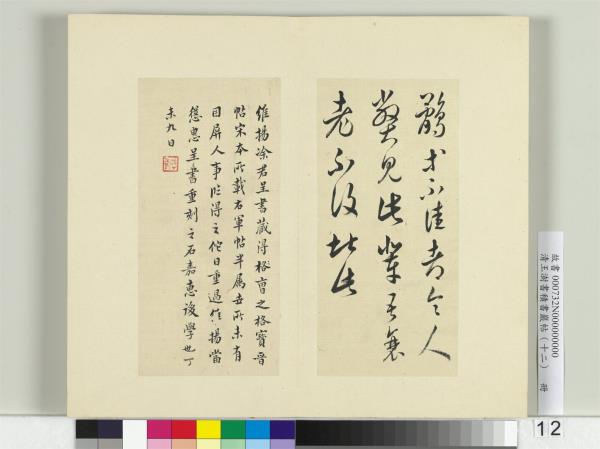 鵝才不佳者令人
弊見此輩吾衰
老不復堪此
維揚涂君呈書藏得格曹之格寶晉
帖宋本所載右軍帖半屬世所未有
因屏人事臨得之佗日重過維揚當
慫恿呈書重刻之石嘉惠後學也丁
未九日
故書000732N000000000
清王澍書積書巖帖（十二） 冊
12